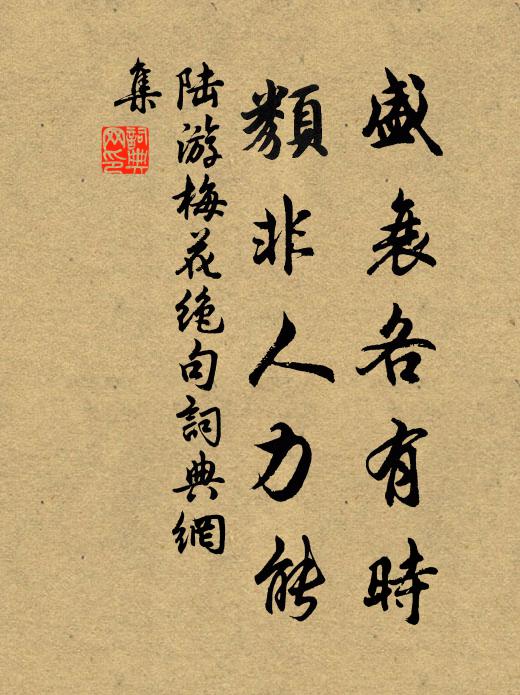 盛衰各有時
類非人力能
陆游梅花绝句詞典網
集
詞典
网印